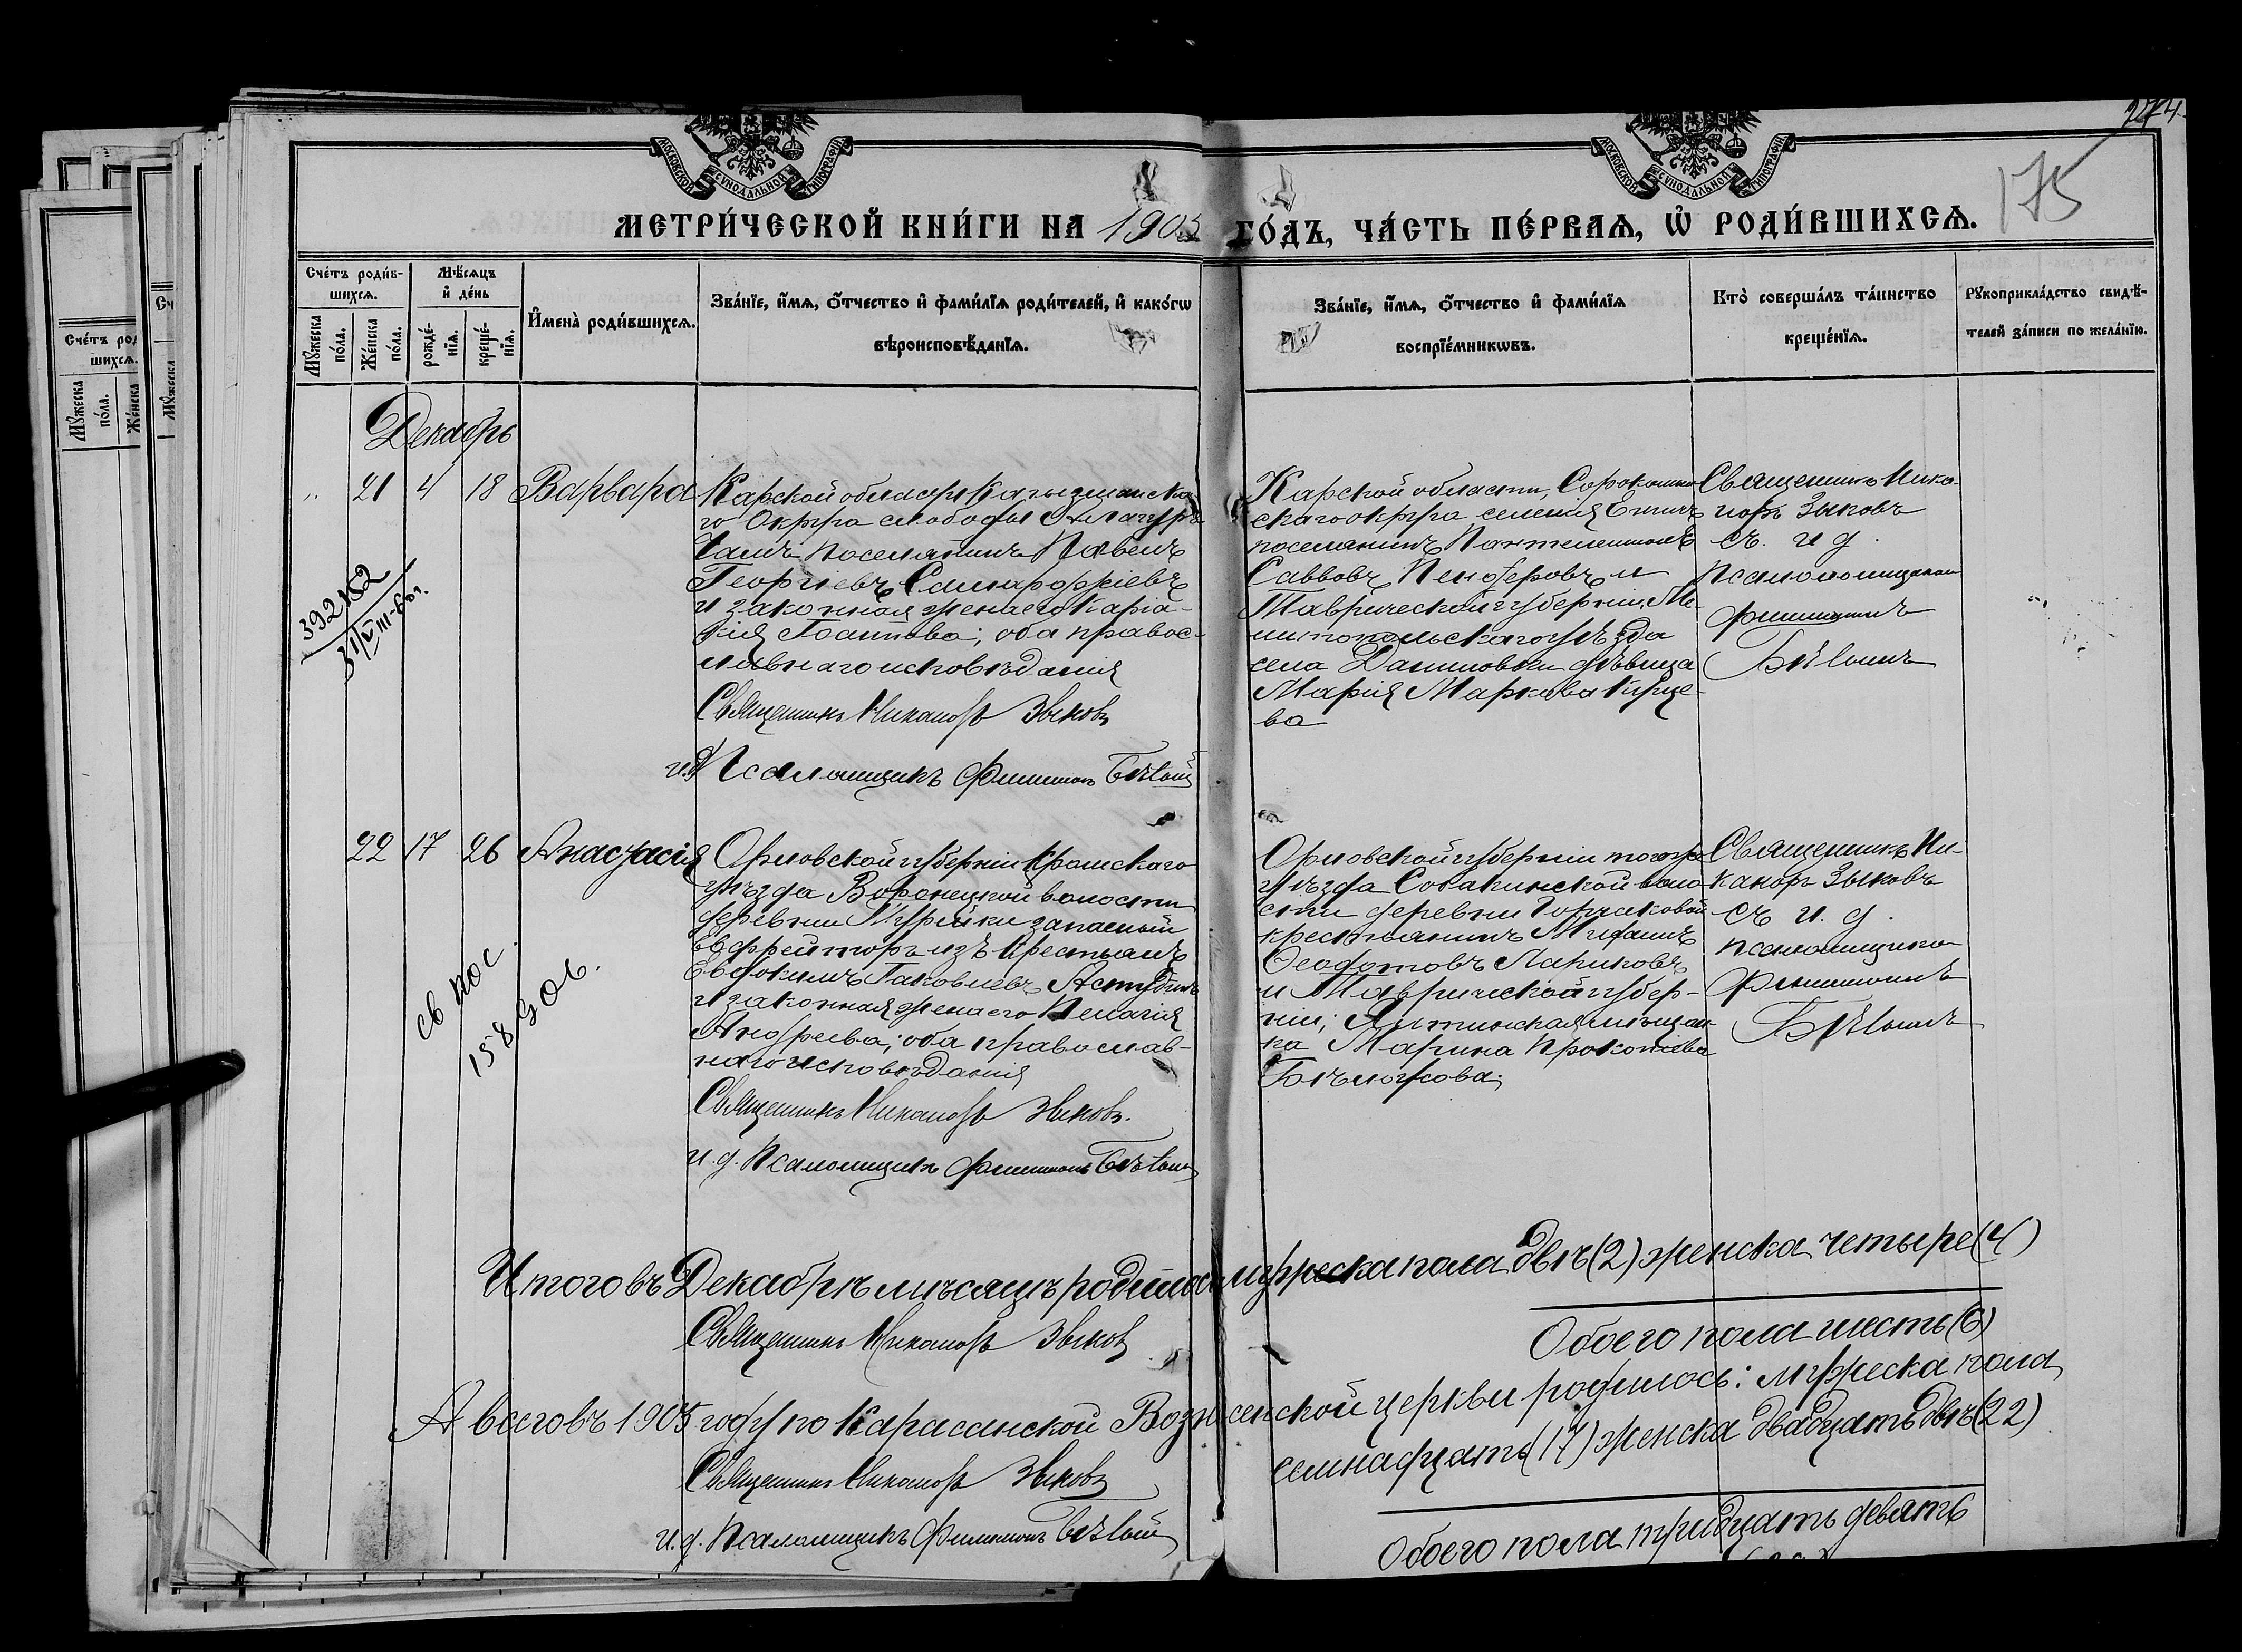 274
175
МОСКОВСКОЙ СѴНОДАЛЬНОЙ ТИПОГРАФІИ
МОСКОВСКОЙ СѴНОДАЛЬНОЙ ТИПОГРАФІИ
МЕТРИ́ЧЕСКОЙ КНИ́ГИ НА 1905 ГО́ДЪ, ЧА́СТЬ ПЕ́РВАѦ, Ѿ РОДИ́ВШИХСѦ.
Сче́тъ роди́вшихсѧ.
Мѹжеска по́ла.
Же́нска по́ла.
Мѣ́сѧцъ и҆ де́нь
рожде́нїѧ.
креще́нїѧ.
И҆мена̀ роди́вшихсѧ.
Зва́нїе, и҆́мѧ, ѻ҆́тчество и҆ фами́лїѧ роди́телей, и҆ како́гѡ
вѣроисповѣ́данїѧ.
Зва́нїе, и҆́мѧ, ѻ҆́тчество и҆ фами́лїѧ
воспрїе́мникѡвъ.
Кто̀ соверша́лъ та́инство
креще́нїѧ.
Рѹкоприкла́дство свидѣ́-
телей за́писи по жела́нїю.
Декабрь
21 4 18 Варвара
Карской области Кагызманска-
го Округа слободы
поселянинъ Павелъ
Георгіевъ
и законная жена его Киріа-
кія; оба правос-
лавнаго исповѣданія
Священникъ Никаноръ Зыковъ
и.д. Псаломщикъ Филимонъ Бѣлый
Карской области,
скаго округа селенія
поселянинъ Пантелеимонъ
Саввовъ и
Таврической губерніи, Ме-
литопольскаго уѣзда
села Даниловки дѣвица
Марія Маркова
ва
Священникъ Ника-
норъ Зыковъ
съ и д.
псаломщикомъ
Филимономъ
Бѣлымъ
392152
22 17 26 Анастасія
Орловской губерніи Кромскаго
уѣзда Воронецкой волости
деревни запасный
Ефрейторъ изъ крестьянъ
Евдокимъ Іаковлевъ
и законная жена его Пелагія
Андреева; оба православ-
наго исповѣданія
Священникъ Никаноръ Зыковъ.
и.д. Псаломщикъ Филимонъ Бѣлый
Орловской губерніи того же
уѣзда Собакинской воло-
сти деревни Горчаковой
крестьянинъ
Ѳеодотовъ Лариковъ
и Таврической губер-
ніи, Ялтинская мѣщан-
ка Марина Прокопіева
Священникъ Ни-
каноръ Зыковъ
съ и. д.
псаломщикомъ
Филимономъ
Бѣлымъ
Итого въ Декабрѣ мѣсяцѣ родилось мужеска пола двѣ (2) женска четыре (4)
Обоего пола шесть (6)
Священникъ Никаноръ Зыковъ
А всего въ 1905 году по Карасанской Вознесенской церкви родилось: мужеска пола
семнадцать (17) женска двадцать двѣ (22)
Священникъ Никаноръ Зыковъ
и.д. Псаломщикъ Филимонъ Бѣлый
Обоего пола тридцать девять